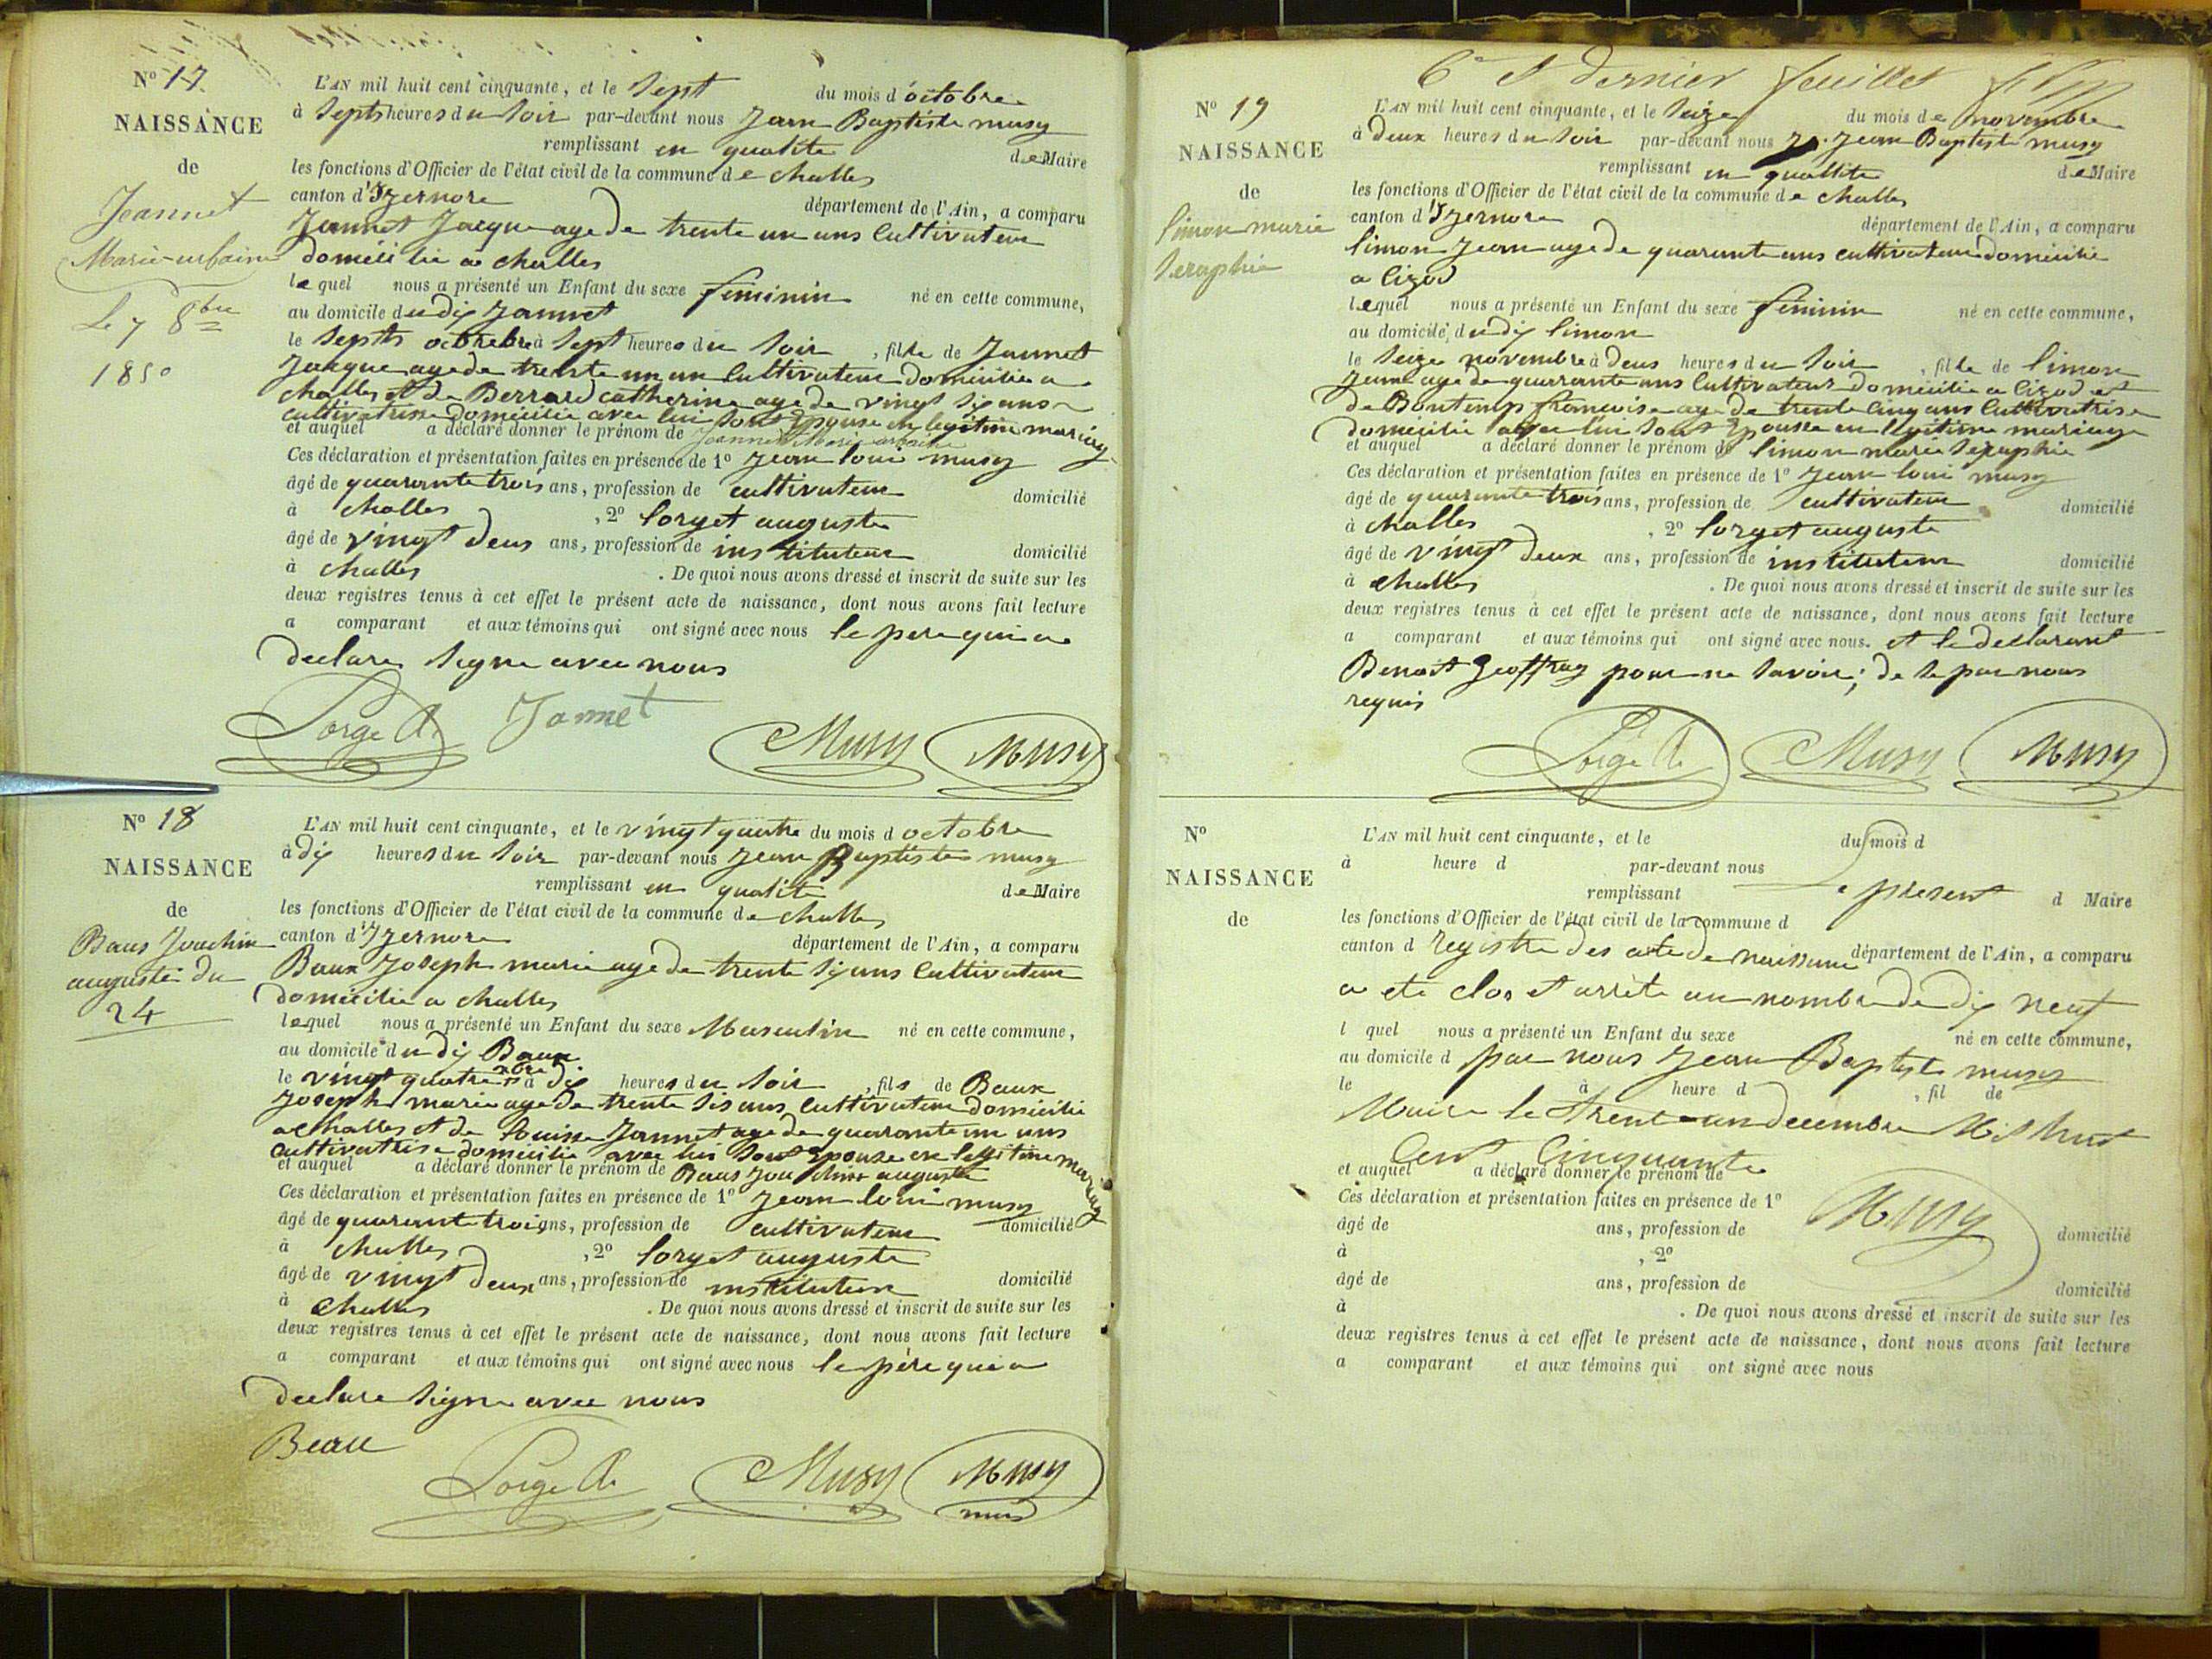 N° 17.
NAISSANCE
de
Jeannet
Marie-urbaine
Le 7 8bre
1850
L'AN mil huit cent cinquante, et le Sept du mois d'octobre
à Septs heures du Soir par-devant nous Jean Baptiste musy
remplissant en qualite de Maire
les fonctions d'Officier de l'état civil de la commune de challes
canton d'Izernore département de l'Ain, a comparu
Jannet Jacque age de trente un ans Cultivateur
domicilie a challes
lequel nous a présenté un Enfant du sexe feminin né en cette commune,
au domicile du dij Jannet
le Septs octobre à Sept heures du Soir, fille de Jannet
Jacque age de trente un an Cultivateur domicilie a
challes et de Berrard catherine age de vingt Sij ans
cultivatrisse domicilie avec lui Sont Epouse en legitime mariag
et auquel a déclaré donner le prénom de Jeannet Marie urbaine
Ces déclaration et présentation faites en présence de 1° Jean loui musy
âgé de quarante trois ans, profession de cultivateur domicilié
à challes, 2° lorget auguste
âgé de vingt deus ans, profession de instituteur domicilié
à challes. De quoi nous avons dressé et inscrit de suite sur les
deux registres tenus à cet effet le présent acte de naissance, dont nous avons fait lecture
a comparant et aux témoins qui ont signé avec nous le pere qui a
declare Signe avec nous
Lorget A. Jannet Musy Musy
N° 18
NAISSANCE
de
Baus Joachin
auguste du
24
L'AN mil huit cent cinquante, et le vingt quatre du mois d octobre
à dij heures du Soir par-devant nous Jean Baptiste musy
remplissant en qualite de Maire
les fonctions d'Officier de l'état civil de la commune de challes
canton d'Izernore département de l'Ain, a comparu
Baux Joseph marie age de trente Sij ans Cultivateur
domicilie a challes
lequel nous a présenté un Enfant du sexe Masculin né en cette commune,
au domicile du dij Baux
le vingt quatre 8bre à dij heures du Soir, fils de Baux
Joseph marie age de trente Sis ans Cultivateur domicilie
a challes et de Louisse Jannet age de quarante un ans
cultivatrise domicilie avec lui Sont Epouse en legitime mariag
et auquel a déclaré donner le prénom de Baus Joachin auguste
Ces déclaration et présentation faites en présence de 1° Jean loui musy
âgé de quarante trois ans, profession de cultivateur domicilié
à challes, 2° lorget auguste
âgé de vingt deux ans, profession de instituteur domicilié
à challes. De quoi nous avons dressé et inscrit de suite sur les
deux registres tenus à cet effet le présent acte de naissance, dont nous avons fait lecture
a comparant et aux témoins qui ont signé avec nous le père qui a
declare Signe avec nous
Beau
Lorget A. Musy Musy
6e et dernier feuillet
N° 19
NAISSANCE
de
limon marie
Seraphie
L'AN mil huit cent cinquante, et le Seize du mois de novembre
à deux heures du Soir par-devant nous Jean Baptiste musy
remplissant en quallite de Maire
les fonctions d'Officier de l'état civil de la commune de challes
canton d'Izernore département de l'Ain, a comparu
limon Jean age de quarante ans cultivateur domicilie
a lizod
lequel nous a présenté un Enfant du sexe féminin né en cette commune,
au domicile du dij limon
le Seize novembre à deus heures du Soir, fille de limon
Jean age de quarante ans Cultivateur domicilie a lizod et
de Bontemp francoise age de trente Cinq ans Cultivatrise
domicilie avec lui Sont Epousse en legitime mariage
et auquel a déclaré donner le prénom de limon marie Séraphie
Ces déclaration et présentation faites en présence de 1° Jean loui musy
âgé de quarante trois ans, profession de cultivateur domicilié
à challes, 2° lorget auguste
âgé de vingt deux ans, profession de instituteur domicilié
à challes. De quoi nous avons dressé et inscrit de suite sur les
deux registres tenus à cet effet le présent acte de naissance, dont nous avons fait lecture
a comparant et aux témoins qui ont signé avec nous. et le declarant
Benoit Geoffray pour ne Savoir; de le par nous
requis
Lorget A. Musy Musy
N°
NAISSANCE
de
L'AN mil huit cent cinquante, et le du mois d
à heure d par-devant nous
remplissant Le present d Maire
les fonctions d'Officier de l'état civil de la commune d
canton d registre des acte de naissance département de l'Ain, a comparu
a eté clos et arrêté au nombre de dij neuf
l quel nous a présenté un Enfant du sexe né en cette commune,
au domicile d par nous Jean Baptiste musy
le à heure d, fil de
Maire le Trent-un decembre Mil huit
Cent Cinquante
et auquel a déclaré donner le prénom de
Ces déclaration et présentation faites en présence de 1°
Musy
âgé de ans, profession de domicilié
à, 2°
âgé de ans, profession de domicilié
à. De quoi nous avons dressé et inscrit de suite sur les
deux registres tenus à cet effet le présent acte de naissance, dont nous avons fait lecture
a comparant et aux témoins qui ont signé avec nous